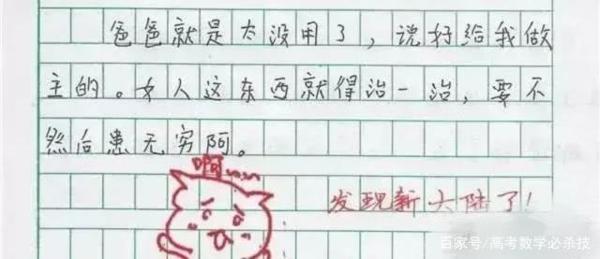 爸爸就是太没用了，说好给我做
主的。女人这东西就得治一治，要不
然后患无穷阿。
发现新大陆了！
百家号/高考数学必杀技